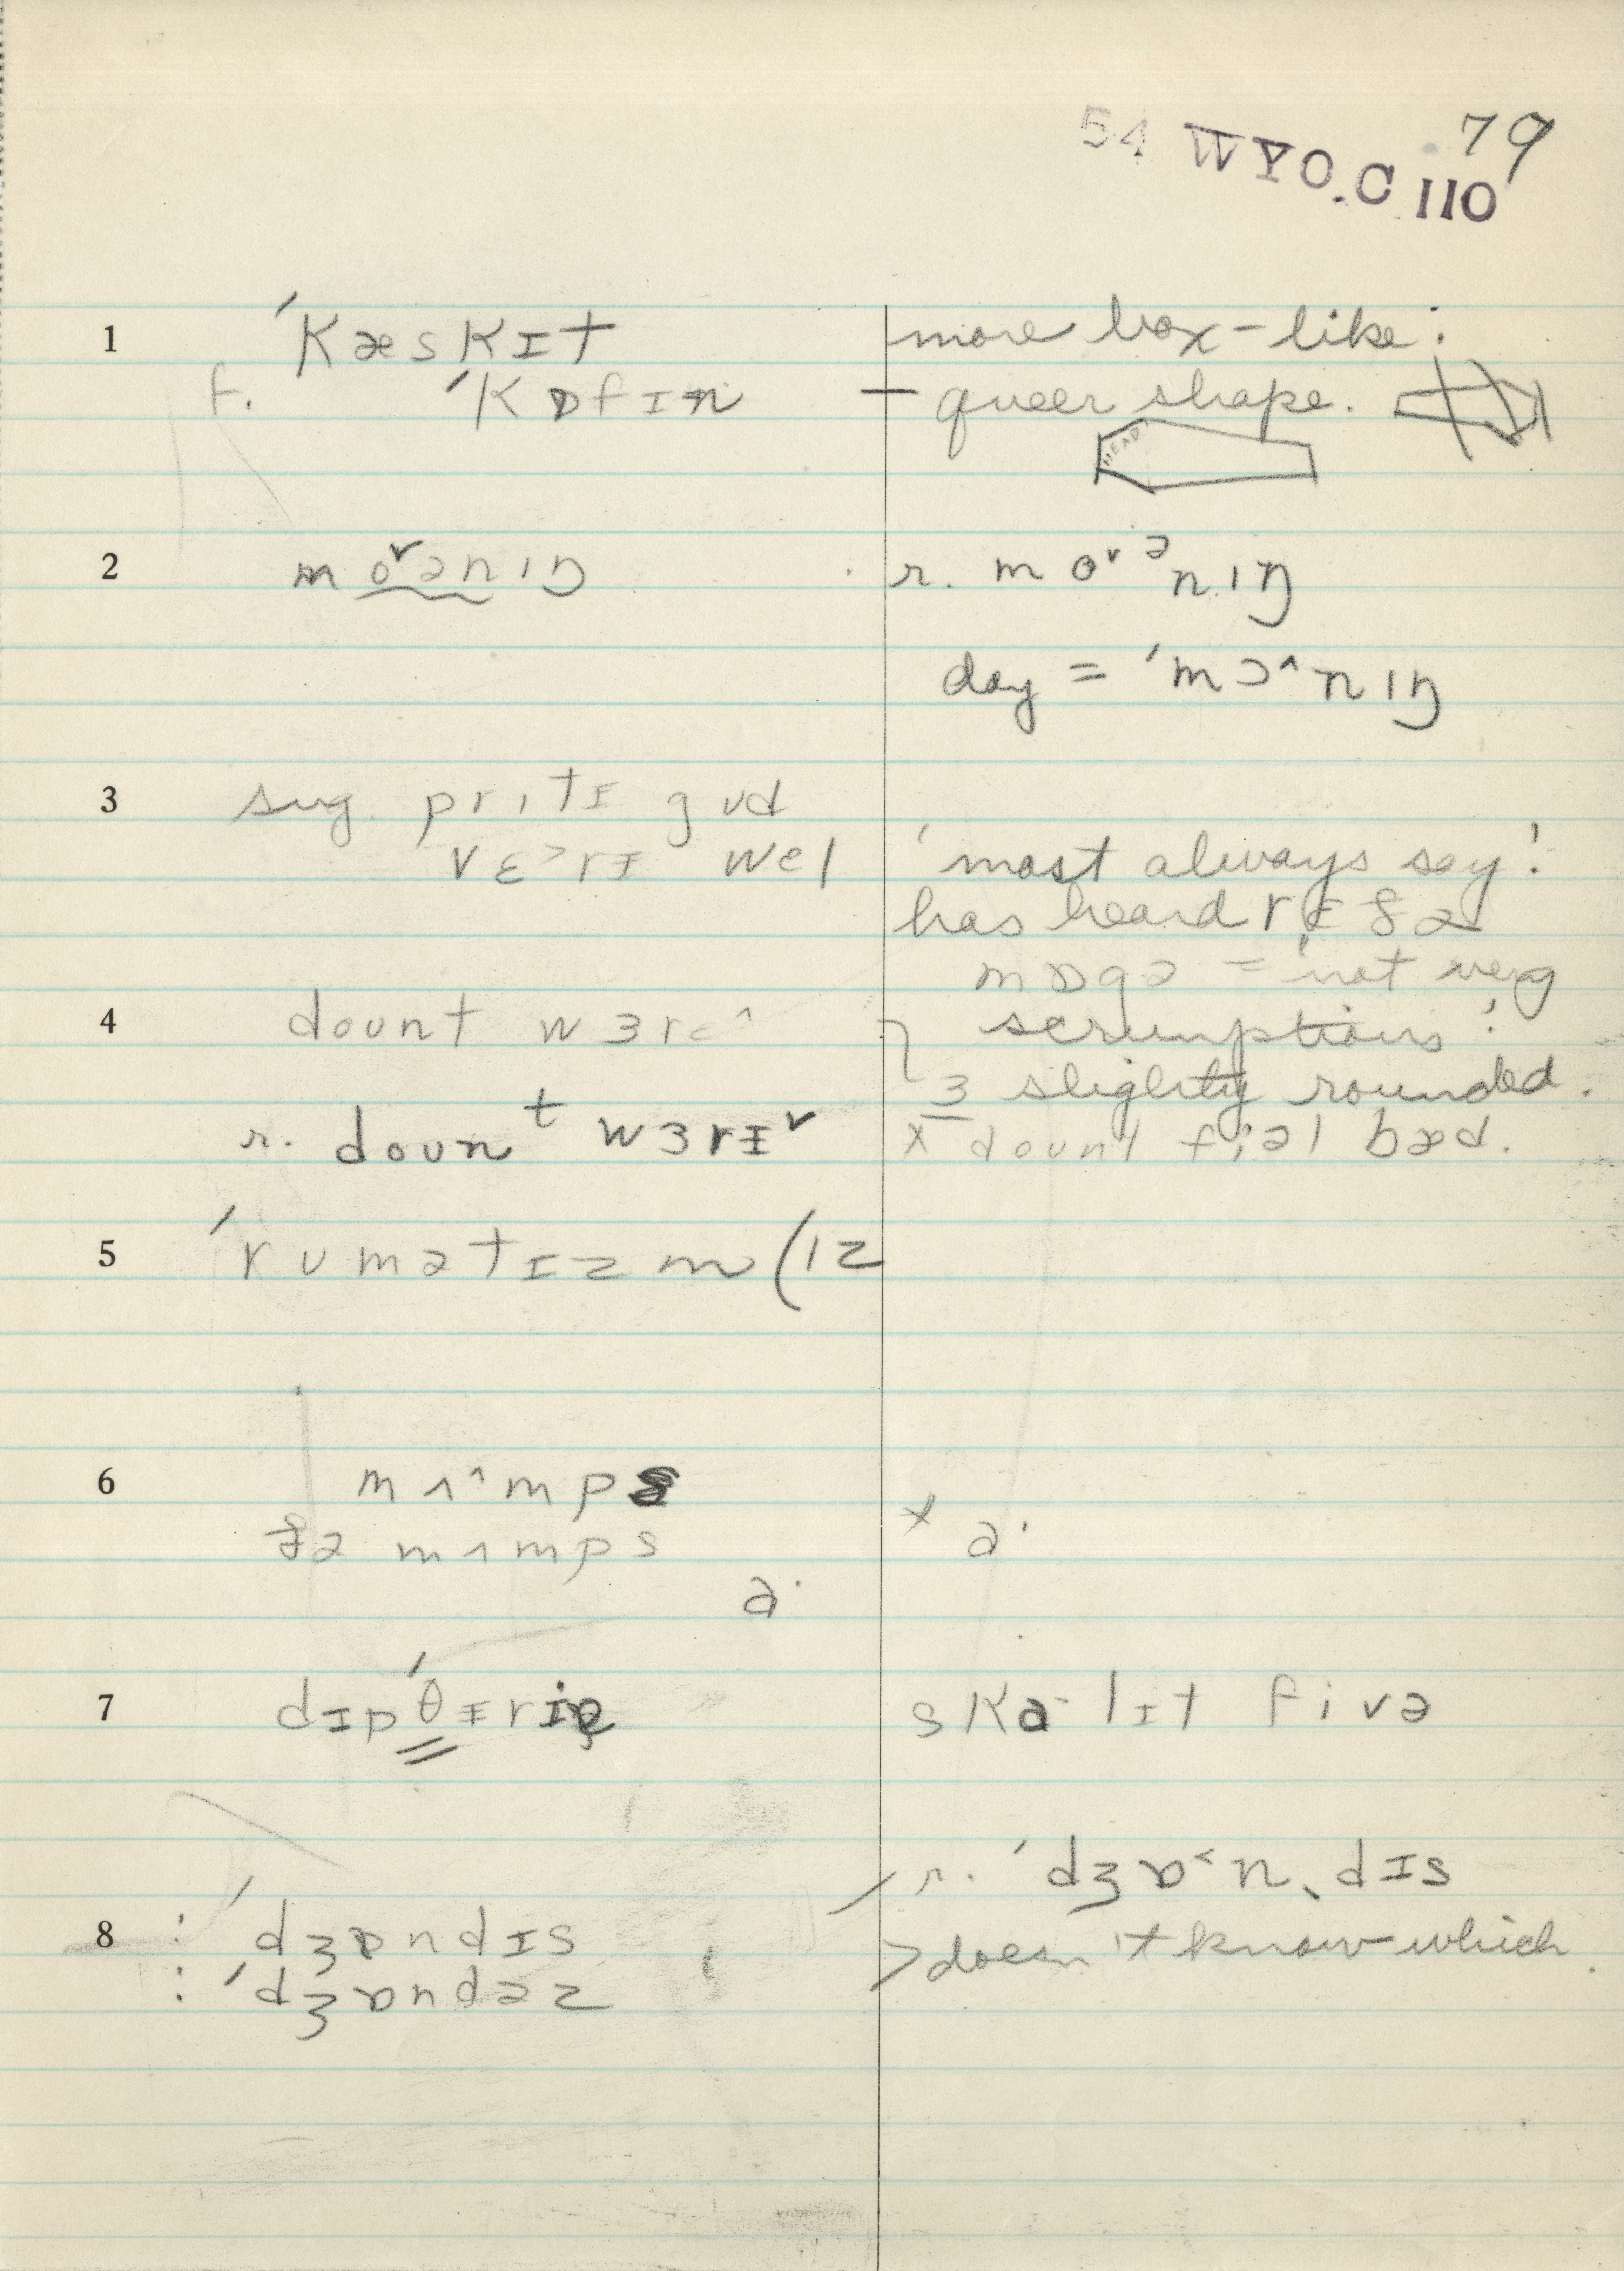 54 WYO.C 110 79
1 ˈkæskɪt more box-like.
f. ˈkɒfɪn — queer shape.
HEAD
2 mo˅ənɪŋ r. mo˅ᵊnɪŋ
day = ˈmɔ^nɪŋ
3 sug. prɪtɪ gʊd
vɛ˃rɪ wel 'most always say'
has heard
= 'not very
4 dount wɜr scrumptious'
ɜ slightly rounded.
r. dounᵗ wɜrɪ˅ x dount fiəl bæd.
5 ˈrumətɪzm (ɪz
6 mʌ^mps x a·
ðə mʌmps
a·
7 dɪpˈθɪriə skɑ·lɪt fivə
r. ˈdʒɒ˂nˎdɪs
8 : ˈdʒɒndɪs > doesn't know which.
: ˈdʒɒndəz